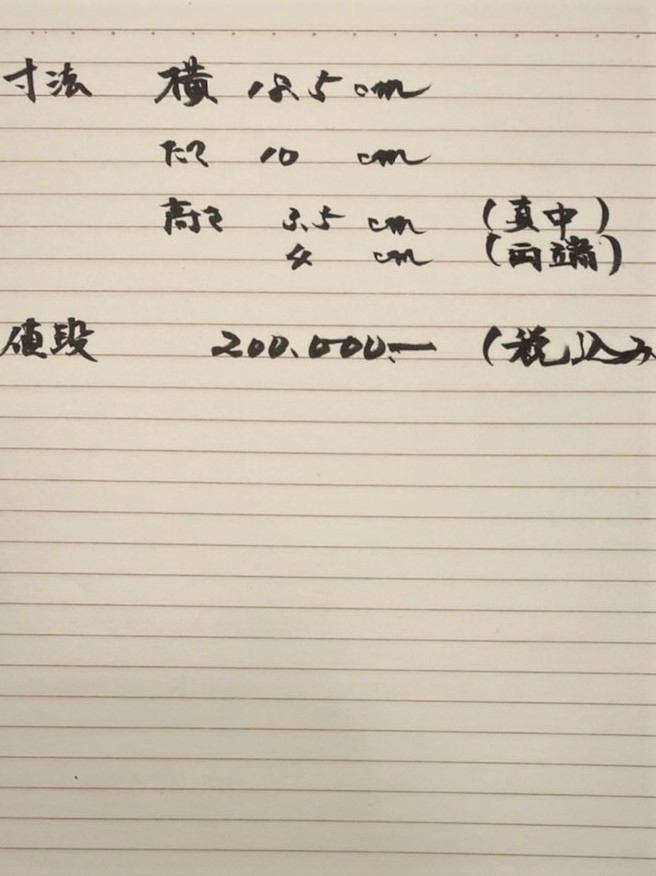 寸法 横 18.5 cm
たて 10 cm
高さ 3.5 cm (真中)
4 cm (両端)
値段 200.000.— (税込み